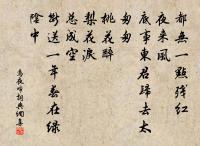 都無一點殘紅
夜來風
底事東君歸去太
匆匆
桃花醉
梨花淚
總成空
斷送一年春在綠
陰中
烏夜啼詞與個集